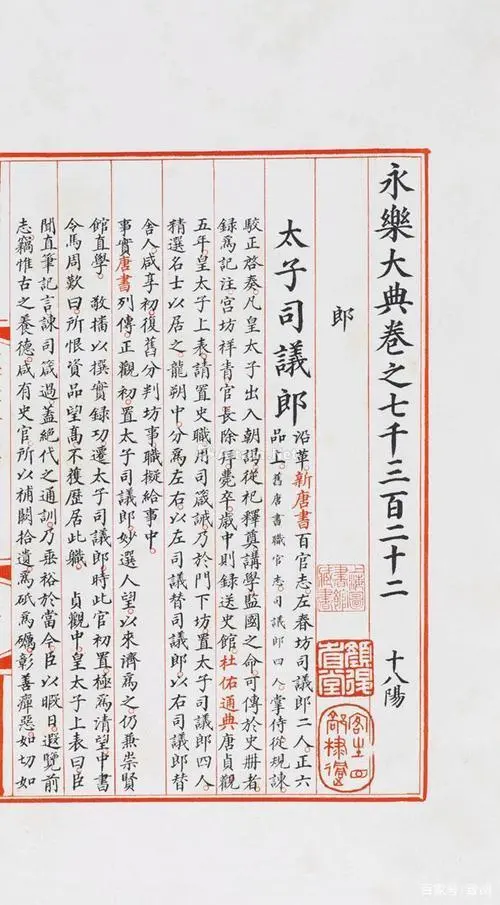 永樂大典卷之七千三百二十二 十八陽
郎
太子司議郎
沿革新唐書百官志左春坊司議郎二人正六
品上舊唐書職官志司議郎四人掌侍從規諫
駮正啓奏凡皇太子出入朝謁從祀釋奠講學監國之命可傳於史冊者
錄爲記注宮坊祥眚官長除拜薨卒歲中則錄送史館杜佑通典唐貞觀
五年皇太子上表請置史職用司箴誡乃於門下坊置太子司議郎四人
精選名士以居之龍朔中分爲左右以左司議替司議郎以右司議郎替
舍人咸享初復舊分判坊事職擬給事中
事實唐書列傳正觀初置太子司議郎妙選人望以來濟爲之仍兼崇賢
館直學 敬播以撰實録功遷太子司議郎時此官初置極爲清望中書
令馬周歎曰所恨資品望高不獲歷居此職 貞觀中皇太子上表曰臣
聞直筆記言諫司箴過蓋絕代之通訓乃垂裕於當今臣以暇日遐覽前
志竊惟古之養德咸有史官所以補闕拾遺爲砥爲礪彰善癉惡如切如